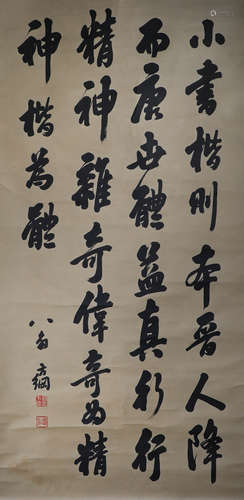 小書楷則本晉人降
而唐世體益真行行
精神雖奇偉奇為精
神楷為體
方綱